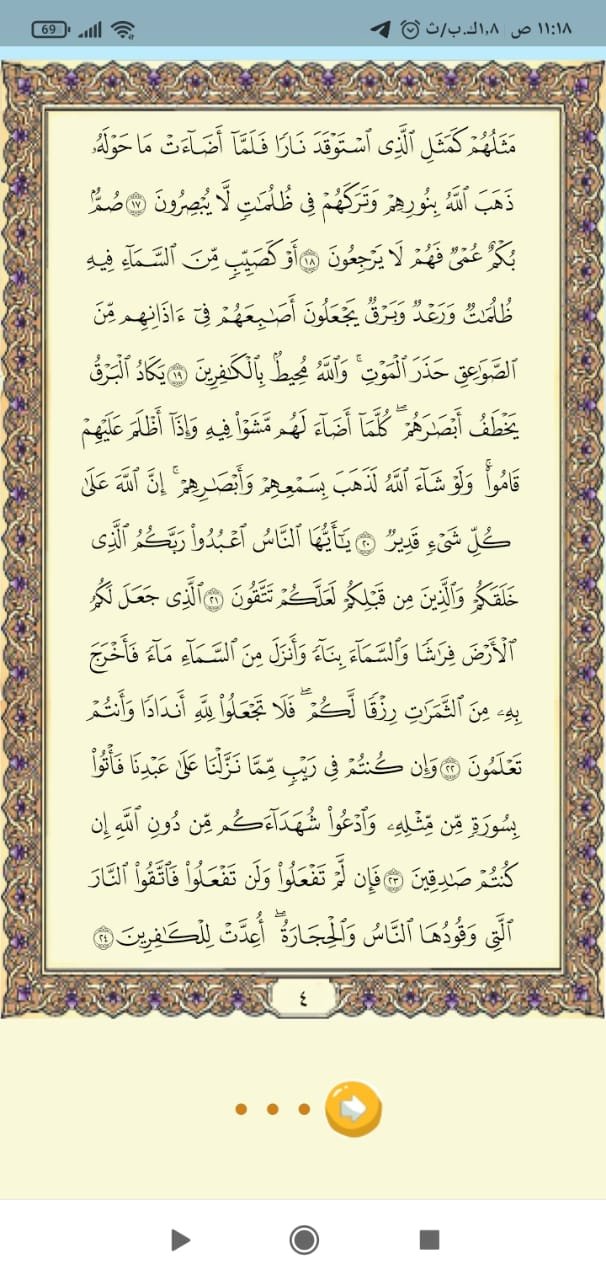 ١١:١٨ ص ١,٨ك.ب/ث 69
مَثَلُهُمْ كَمَثَلِ ٱلَّذِى ٱسْتَوْقَدَ نَارًا فَلَمَّآ أَضَآءَتْ مَا حَوْلَهُۥ
ذَهَبَ ٱللَّهُ بِنُورِهِمْ وَتَرَكَهُمْ فِى ظُلُمَٰتٍ لَّا يُبْصِرُونَ ١٧ صُمٌّۢ
بُكْمٌ عُمْىٌ فَهُمْ لَا يَرْجِعُونَ ١٨ أَوْ كَصَيِّبٍ مِّنَ ٱلسَّمَآءِ فِيهِ
ظُلُمَٰتٌ وَرَعْدٌ وَبَرْقٌ يَجْعَلُونَ أَصَٰبِعَهُمْ فِىٓ ءَاذَانِهِم مِّنَ
ٱلصَّوَٰعِقِ حَذَرَ ٱلْمَوْتِ ۚ وَٱللَّهُ مُحِيطٌۢ بِٱلْكَٰفِرِينَ ١٩ يَكَادُ ٱلْبَرْقُ
يَخْطَفُ أَبْصَٰرَهُمْ ۖ كُلَّمَآ أَضَآءَ لَهُم مَّشَوْا۟ فِيهِ وَإِذَآ أَظْلَمَ عَلَيْهِمْ
قَامُوا۟ ۚ وَلَوْ شَآءَ ٱللَّهُ لَذَهَبَ بِسَمْعِهِمْ وَأَبْصَٰرِهِمْ ۚ إِنَّ ٱللَّهَ عَلَىٰ
كُلِّ شَىْءٍ قَدِيرٌ ٢٠ يَٰٓأَيُّهَا ٱلنَّاسُ ٱعْبُدُوا۟ رَبَّكُمُ ٱلَّذِى
خَلَقَكُمْ وَٱلَّذِينَ مِن قَبْلِكُمْ لَعَلَّكُمْ تَتَّقُونَ ٢١ ٱلَّذِى جَعَلَ لَكُمُ
ٱلْأَرْضَ فِرَٰشًا وَٱلسَّمَآءَ بِنَآءً وَأَنزَلَ مِنَ ٱلسَّمَآءِ مَآءً فَأَخْرَجَ
بِهِۦ مِنَ ٱلثَّمَرَٰتِ رِزْقًا لَّكُمْ ۖ فَلَا تَجْعَلُوا۟ لِلَّهِ أَندَادًا وَأَنتُمْ
تَعْلَمُونَ ٢٢ وَإِن كُنتُمْ فِى رَيْبٍ مِّمَّا نَزَّلْنَا عَلَىٰ عَبْدِنَا فَأْتُوا۟
بِسُورَةٍ مِّن مِّثْلِهِۦ وَٱدْعُوا۟ شُهَدَآءَكُم مِّن دُونِ ٱللَّهِ إِن
كُنتُمْ صَٰدِقِينَ ٢٣ فَإِن لَّمْ تَفْعَلُوا۟ وَلَن تَفْعَلُوا۟ فَٱتَّقُوا۟ ٱلنَّارَ
ٱلَّتِى وَقُودُهَا ٱلنَّاسُ وَٱلْحِجَارَةُ ۖ أُعِدَّتْ لِلْكَٰفِرِينَ ٢٤
٤